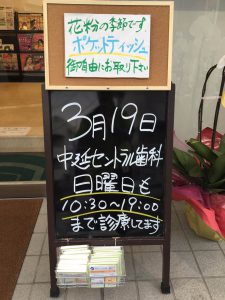 花粉の季節です
ポケットティッシュ
御自由にお取り下さい
3月19日
中延セントラル歯科
日曜日も
10:30〜19:00
まで診療してます